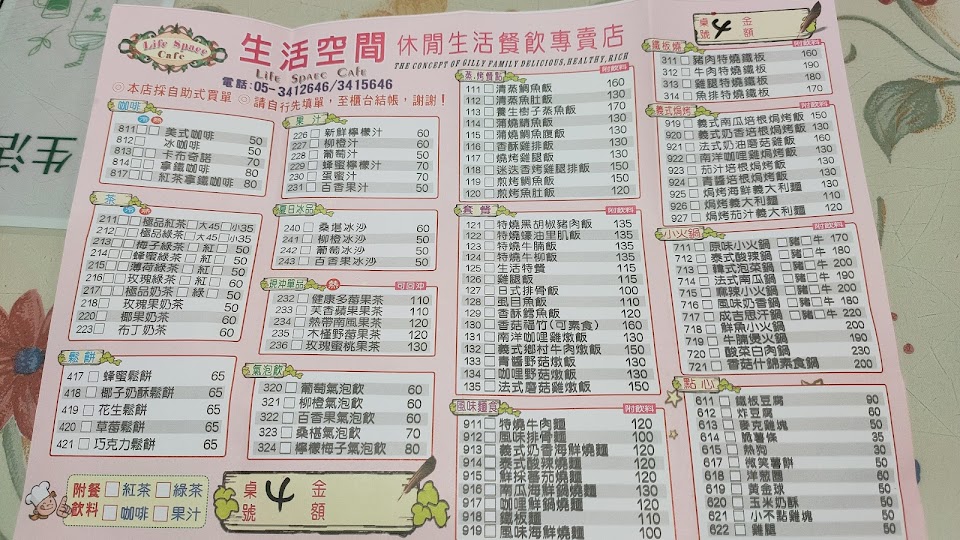 Life Space
Cafe
生活空間 休閒生活餐飲專賣店
Life Spaec Cafe THE CONCEPT OF GILLY FAMILY DELICIOUS,HEALTHY,RICH
電話:05-3412646/3415646
◎本店採自助式買單 ◎請自行先填單,至櫃台結帳,謝謝!
咖啡
冰 熱
811 美式咖啡 50
812 冰咖啡 50
813 卡布奇諾 70
814 拿鐵咖啡 80
817 紅茶拿鐵咖啡 80
茶
冰 熱
211 極品紅茶 大45 小35
212 極品綠茶 大45 小35
213 梅子綠茶 紅 50
214 蜂蜜綠茶 紅 50
215 薄荷綠茶 紅 50
216 玫瑰綠茶 紅 60
217 極品奶茶 綠 50
218 玫瑰奶茶 60
220 椰果奶茶 60
223 布丁奶茶 60
鬆餅
417 蜂蜜鬆餅 65
418 椰子奶酥鬆餅 65
419 花生鬆餅 65
420 草莓鬆餅 65
421 巧克力鬆餅 65
附餐飲料
紅茶 綠茶
咖啡 果汁
桌號 4 金額
果汁
226 新鮮檸檬汁 60
227 柳橙汁 60
228 葡萄汁 50
229 蜂蜜檸檬汁 70
230 蛋蜜汁 70
231 百香果汁 50
夏日冰品
240 桑堪冰沙 60
241 柳橙冰沙 50
242 葡萄冰沙 50
243 百香果冰沙 50
原沖單品 熱 可回沖
232 健康多莓果茶 110
233 芙香蘋果果茶 110
234 熱帶南風果茶 120
235 木槿野莓果茶 120
236 玫瑰蜜桃果茶 130
氣泡飲
320 葡萄氣泡飲 60
321 柳橙氣泡飲 60
322 百香果氣泡飲 60
323 桑椹氣泡飲 70
324 檸檬梅子氣泡飲 80
蒸.烤餐點 附飲料
111 清蒸鯛魚飯 160
112 清蒸魚肚飯 130
113 養生樹子蒸魚飯 170
114 蒲燒鯛魚飯
115 蒲燒鯛魚腹飯 130
116 香酥雞排飯 130
117 燒烤雞腿飯 130
118 迷迭香烤雞腿排飯 150
119 煎烤鯛魚飯 150
120 煎烤魚肚飯 120
套餐 附飲料
121 特燒黑胡椒豬肉飯 135
122 特燒蠔油里肌飯 135
123 特燒牛腩飯 135
124 特燒牛柳飯 135
125 生活特餐 135
126 雞腿飯 115
127 日式排骨飯 100
128 虱目魚飯 110
129 香酥鱈魚飯 110
130 香菇福竹(可素食) 160
131 南洋咖哩雞燉飯 130
132 義式鄉村牛肉燉飯 150
133 青醬野菇燉飯 130
134 咖哩野菇燉飯 130
135 法式蘑菇雞燉飯 150
風味麵食 附飲料
911 特燒牛肉麵 120
912 風味排骨麵 100
913 義式奶香海鮮燒麵 120
914 泰式酸辣燒麵 120
915 鮮採番茄燒麵 120
916 南瓜海鮮鍋燒麵 120
917 咖哩鮮鍋燒麵 120
918 鐵板麵 110
919 風味海鮮燒麵 100
桌號 4 金額
鐵板燒 附飲料
311 豬肉特燒鐵板 160
312 牛肉特燒鐵板 190
313 雞腿特燒鐵板 190
314 魚排特燒鐵板 170
義式焗烤 附飲料
919 義式南瓜培根焗烤飯 150
920 義式奶香培根焗烤飯 130
921 法式奶油蘑菇雞飯 160
922 南洋咖哩雞焗烤飯 130
923 茄汁培根焗烤飯 130
924 青醬培根焗烤飯 130
925 焗烤海鮮義大利麵 130
926 焗烤奶香義大利麵 110
927 焗烤茄汁義大利麵 120
小火鍋 附飲料
711 原味小火鍋 豬 牛 170
712 泰式酸辣鍋 豬 牛 180
713 韓式泡菜鍋 豬 牛 200
714 法式南瓜鍋 豬 牛 190
715 麻辣小火鍋 豬 牛 200
716 風味奶香鍋 豬 牛 180
717 成吉思汗鍋 豬 牛 220
718 鮮魚小火鍋 200
719 牛腩煲火鍋 190
720 酸菜白肉鍋 230
721 香菇什錦素食鍋 200
點心
611 鐵板豆腐 90
612 炸豆腐 60
613 麥克雞塊 50
614 脆薯條 35
615 熱狗 30
617 微笑薯餅 50
618 洋蔥圈 60
619 黃金球 50
620 玉米奶酥 50
621 小不點雞塊 50
622 雞腿 50
生活